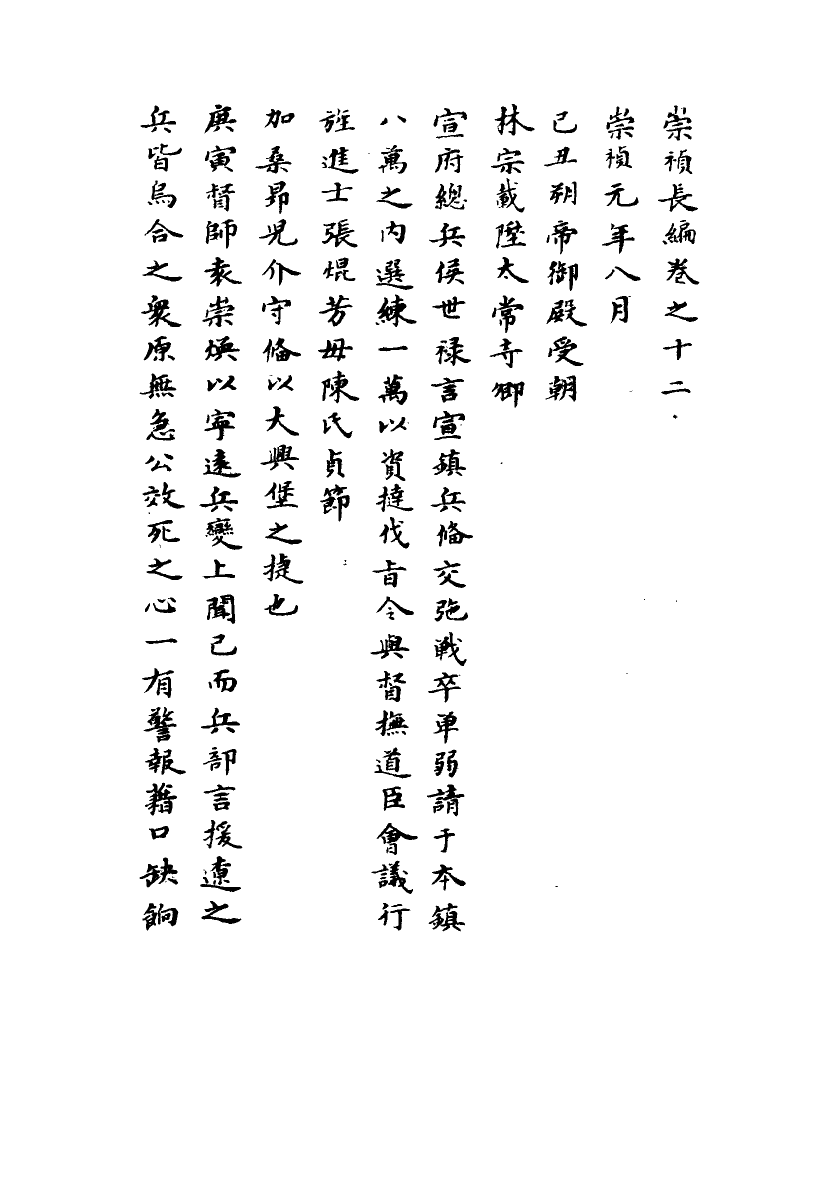 崇禎長編卷之十二
崇禎元年八月
己丑朔帝御殿受朝
林宗載陞太常寺卿
宣府總兵侯世禄言宣鎮兵俻交弛戦卒单弱請于本鎮
八萬之内選練一萬以資撻伐㫖令與督撫道臣會議行
旌進士張焜芳毋陳氏貞節
加桑昻児介守俻以大興堡之捷也
庚寅督師袁崇煥以寜逺兵變上聞已而兵部言援遼之
兵皆烏合之衆原無急公效死之心一有警報藉口缺餉